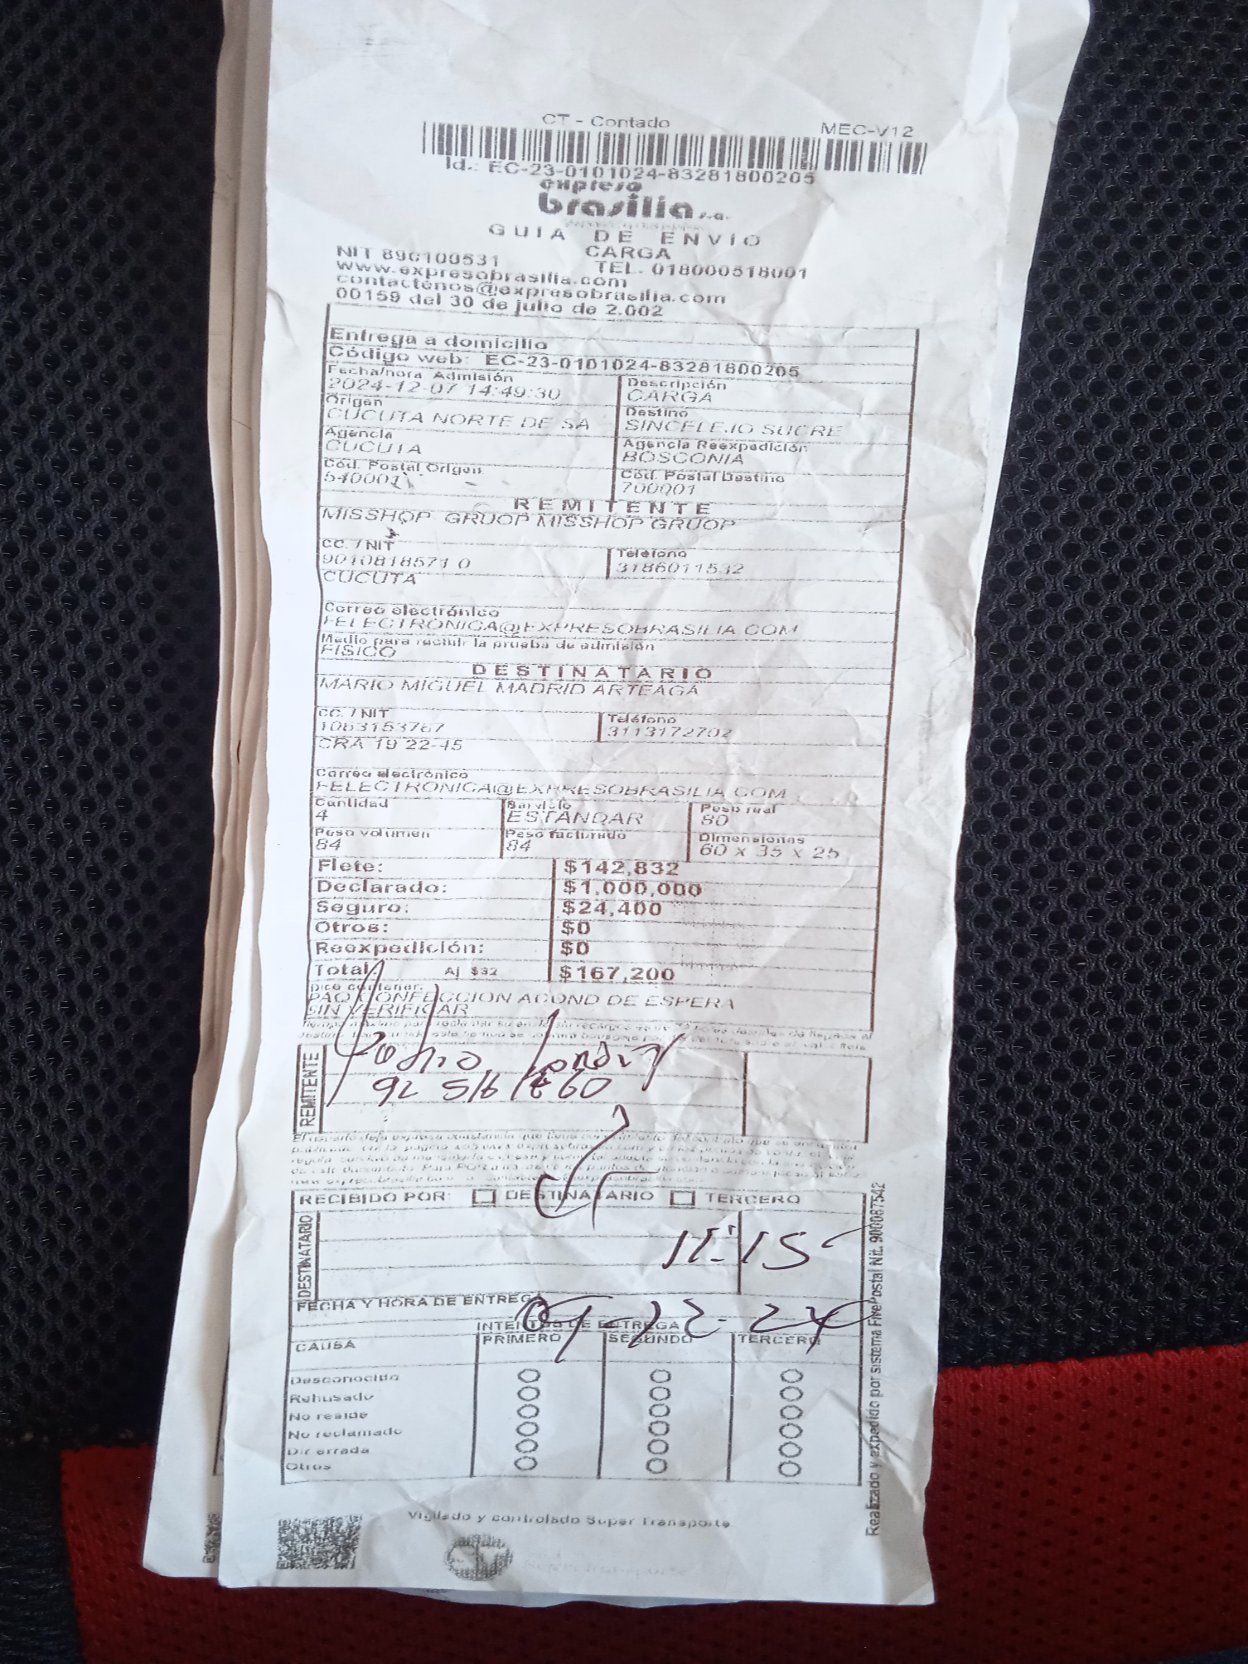 CT - Contado MEC-V12
Id.: EC-23-0101024-83281800205
expreso
brasilia s.a.
GUIA DE ENVIO
CARGA
NIT 890100531 TEL. 018000518001
www.expresobrasilia.com
contactenos@expresobrasilia.com
00159 del 30 de julio de 2.002
Entrega a domicilio
Código web: EC-23-0101024-83281800205
Fecha/hora Admisión Descripción
2024-12-07 14:49:30 CARGA
Origen Destino
CUCUTA NORTE DE SA SINCELEJO SUCRE
Agencia Agencia Reexpedición
CUCUTA BOSCONIA
Cód. Postal Origen Cód. Postal Destino
540001 700001
REMITENTE
MISSHOP GRUOP MISSHOP GRUOP
CC. / NIT Teléfono
9010818571 0 3186011532
CUCUTA
Correo electrónico
FELECTRONICA@EXPRESOBRASILIA.COM
Medio para recibir la prueba de admisión
FISICO
DESTINATARIO
MARIO MIGUEL MADRID ARTEAGA
CC. / NIT Teléfono
1063153767 3113172702
CRA 19 22-45
Correo electrónico
FELECTRONICA@EXPRESOBRASILIA.COM
Cantidad Servicio Peso real
4 ESTANDAR 80
Peso volumen Peso facturado Dimensiones
84 84 60 x 35 x 25
Flete: $142,832
Declarado: $1,000,000
Seguro: $24,400
Otros: $0
Reexpedición: $0
Total Aj $32 $167,200
Dice contener:
PAQ CONFECCION ACOND DE ESPERA
SIN VERIFICAR
REMITENTE
RECIBIDO POR: DESTINATARIO TERCERO
DESTINATARIO
11:15
FECHA Y HORA DE ENTREGA
09-12-24
INTENTOS DE ENTREGA
CAUSA PRIMERO SEGUNDO TERCERO
Desconocido
Rehusado
No reside
No reclamado
Dir errada
Otros
Realizado y expedido por sistema FirePostal Nit. 900087542
Vigilado y controlado Super Transporte